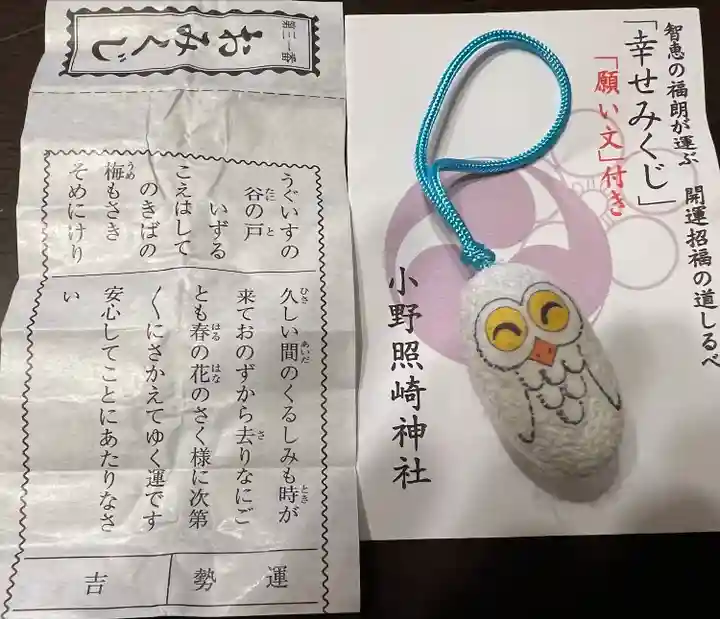 第三一番
おみくじ
うぐいすの
谷の戸
いずる
こえはして
のきばの
梅もさき
そめにけり
久しい間のくるしみも時が
来ておのずから去りなにご
とも春の花のさく様に次第
〱にさかえてゆく運です
安心してことにあたりなさ
い
運勢
吉
智恵の福朗が運ぶ 開運招福の道しるべ
「幸せみくじ」
「願い文」付き
小野照崎神社